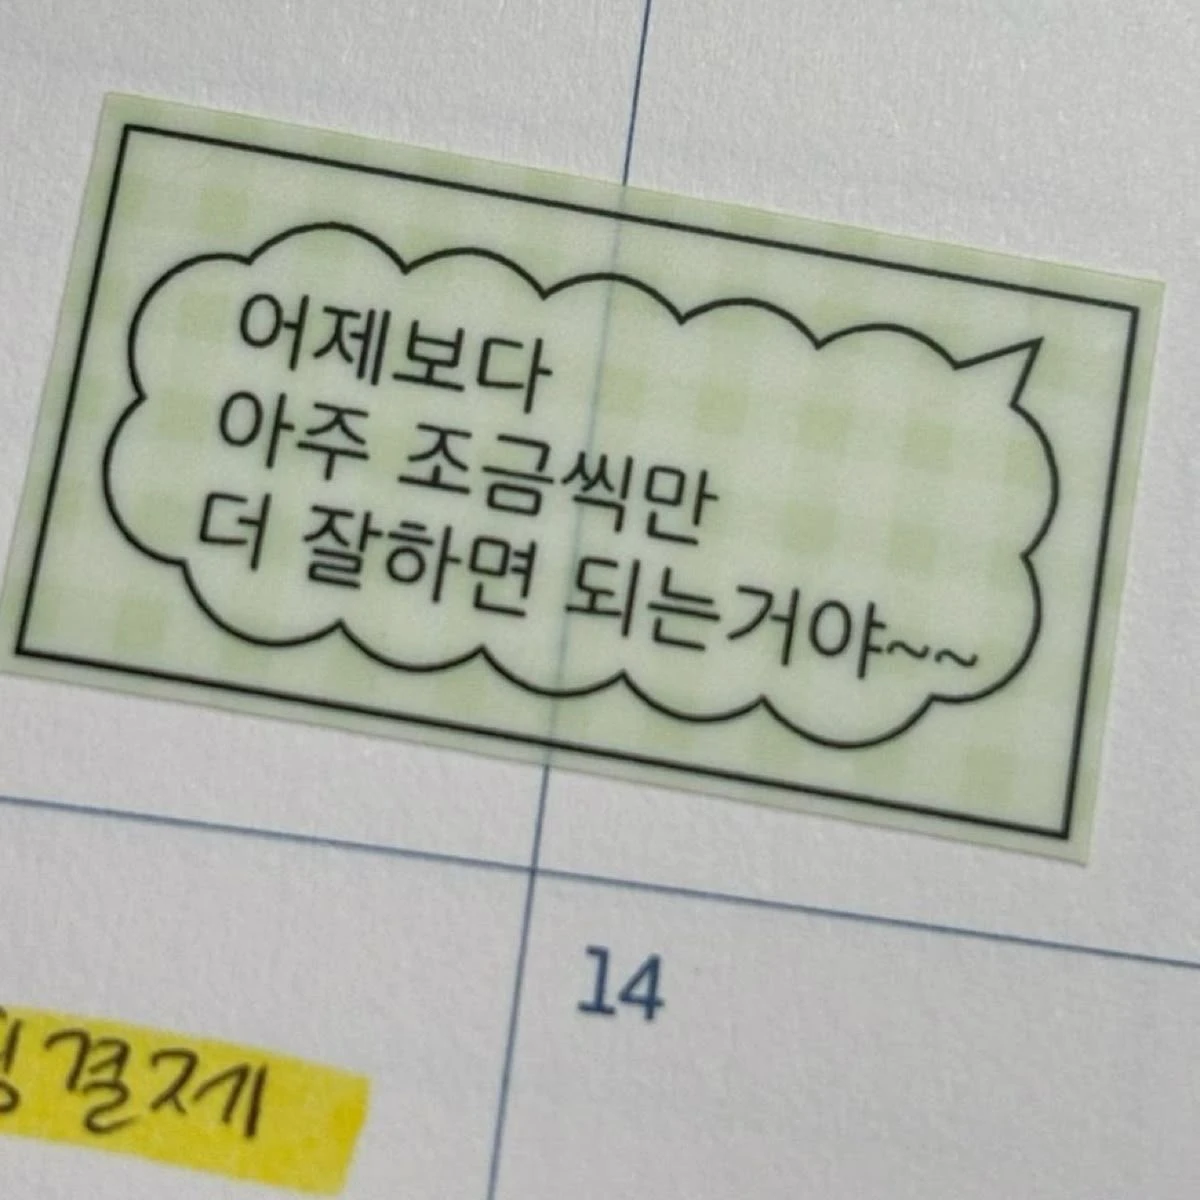 어제보다
아주 조금씩만
더 잘하면 되는거야~~
14
결제